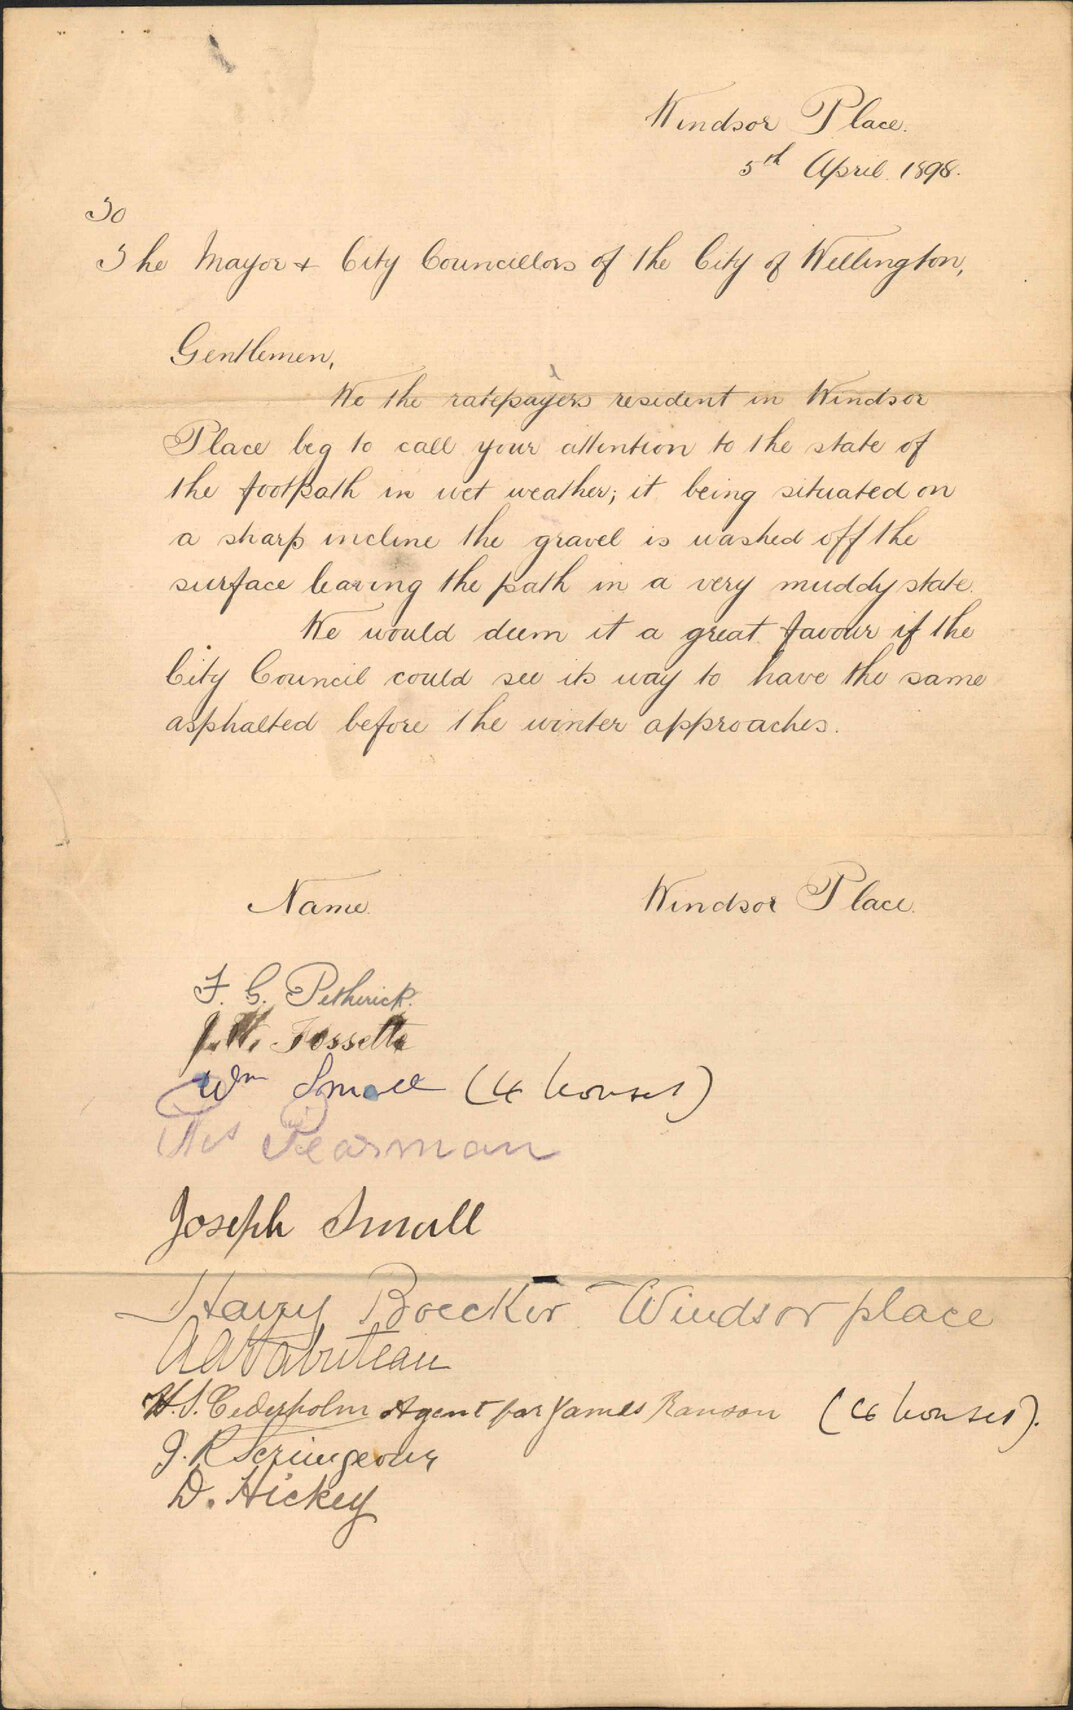 Windsor Place.
5th April. 1898.
To
The Mayor & City Councillors of the City of Wellington,
Gentlemen,
We the ratepayers resident in Windsor
Place beg to call your attention to the state of
the footpath in wet weather; it being situated on
a sharp incline the gravel is washed off the
surface leaving the path in a very muddy state.
We would deem it a great favour if the
City Council could see its way to have the same
asphalted before the winter approaches.
Name. Windsor Place.
F. G. Petherick.
J. W. Fossette
Wm Small (4 houses)
Pearman
Joseph Small
Harry Boecker Windsor place
H. S. Cederholm Agent for James Ranson (6 houses).
J. R. Scrimgeour
D. Hickey